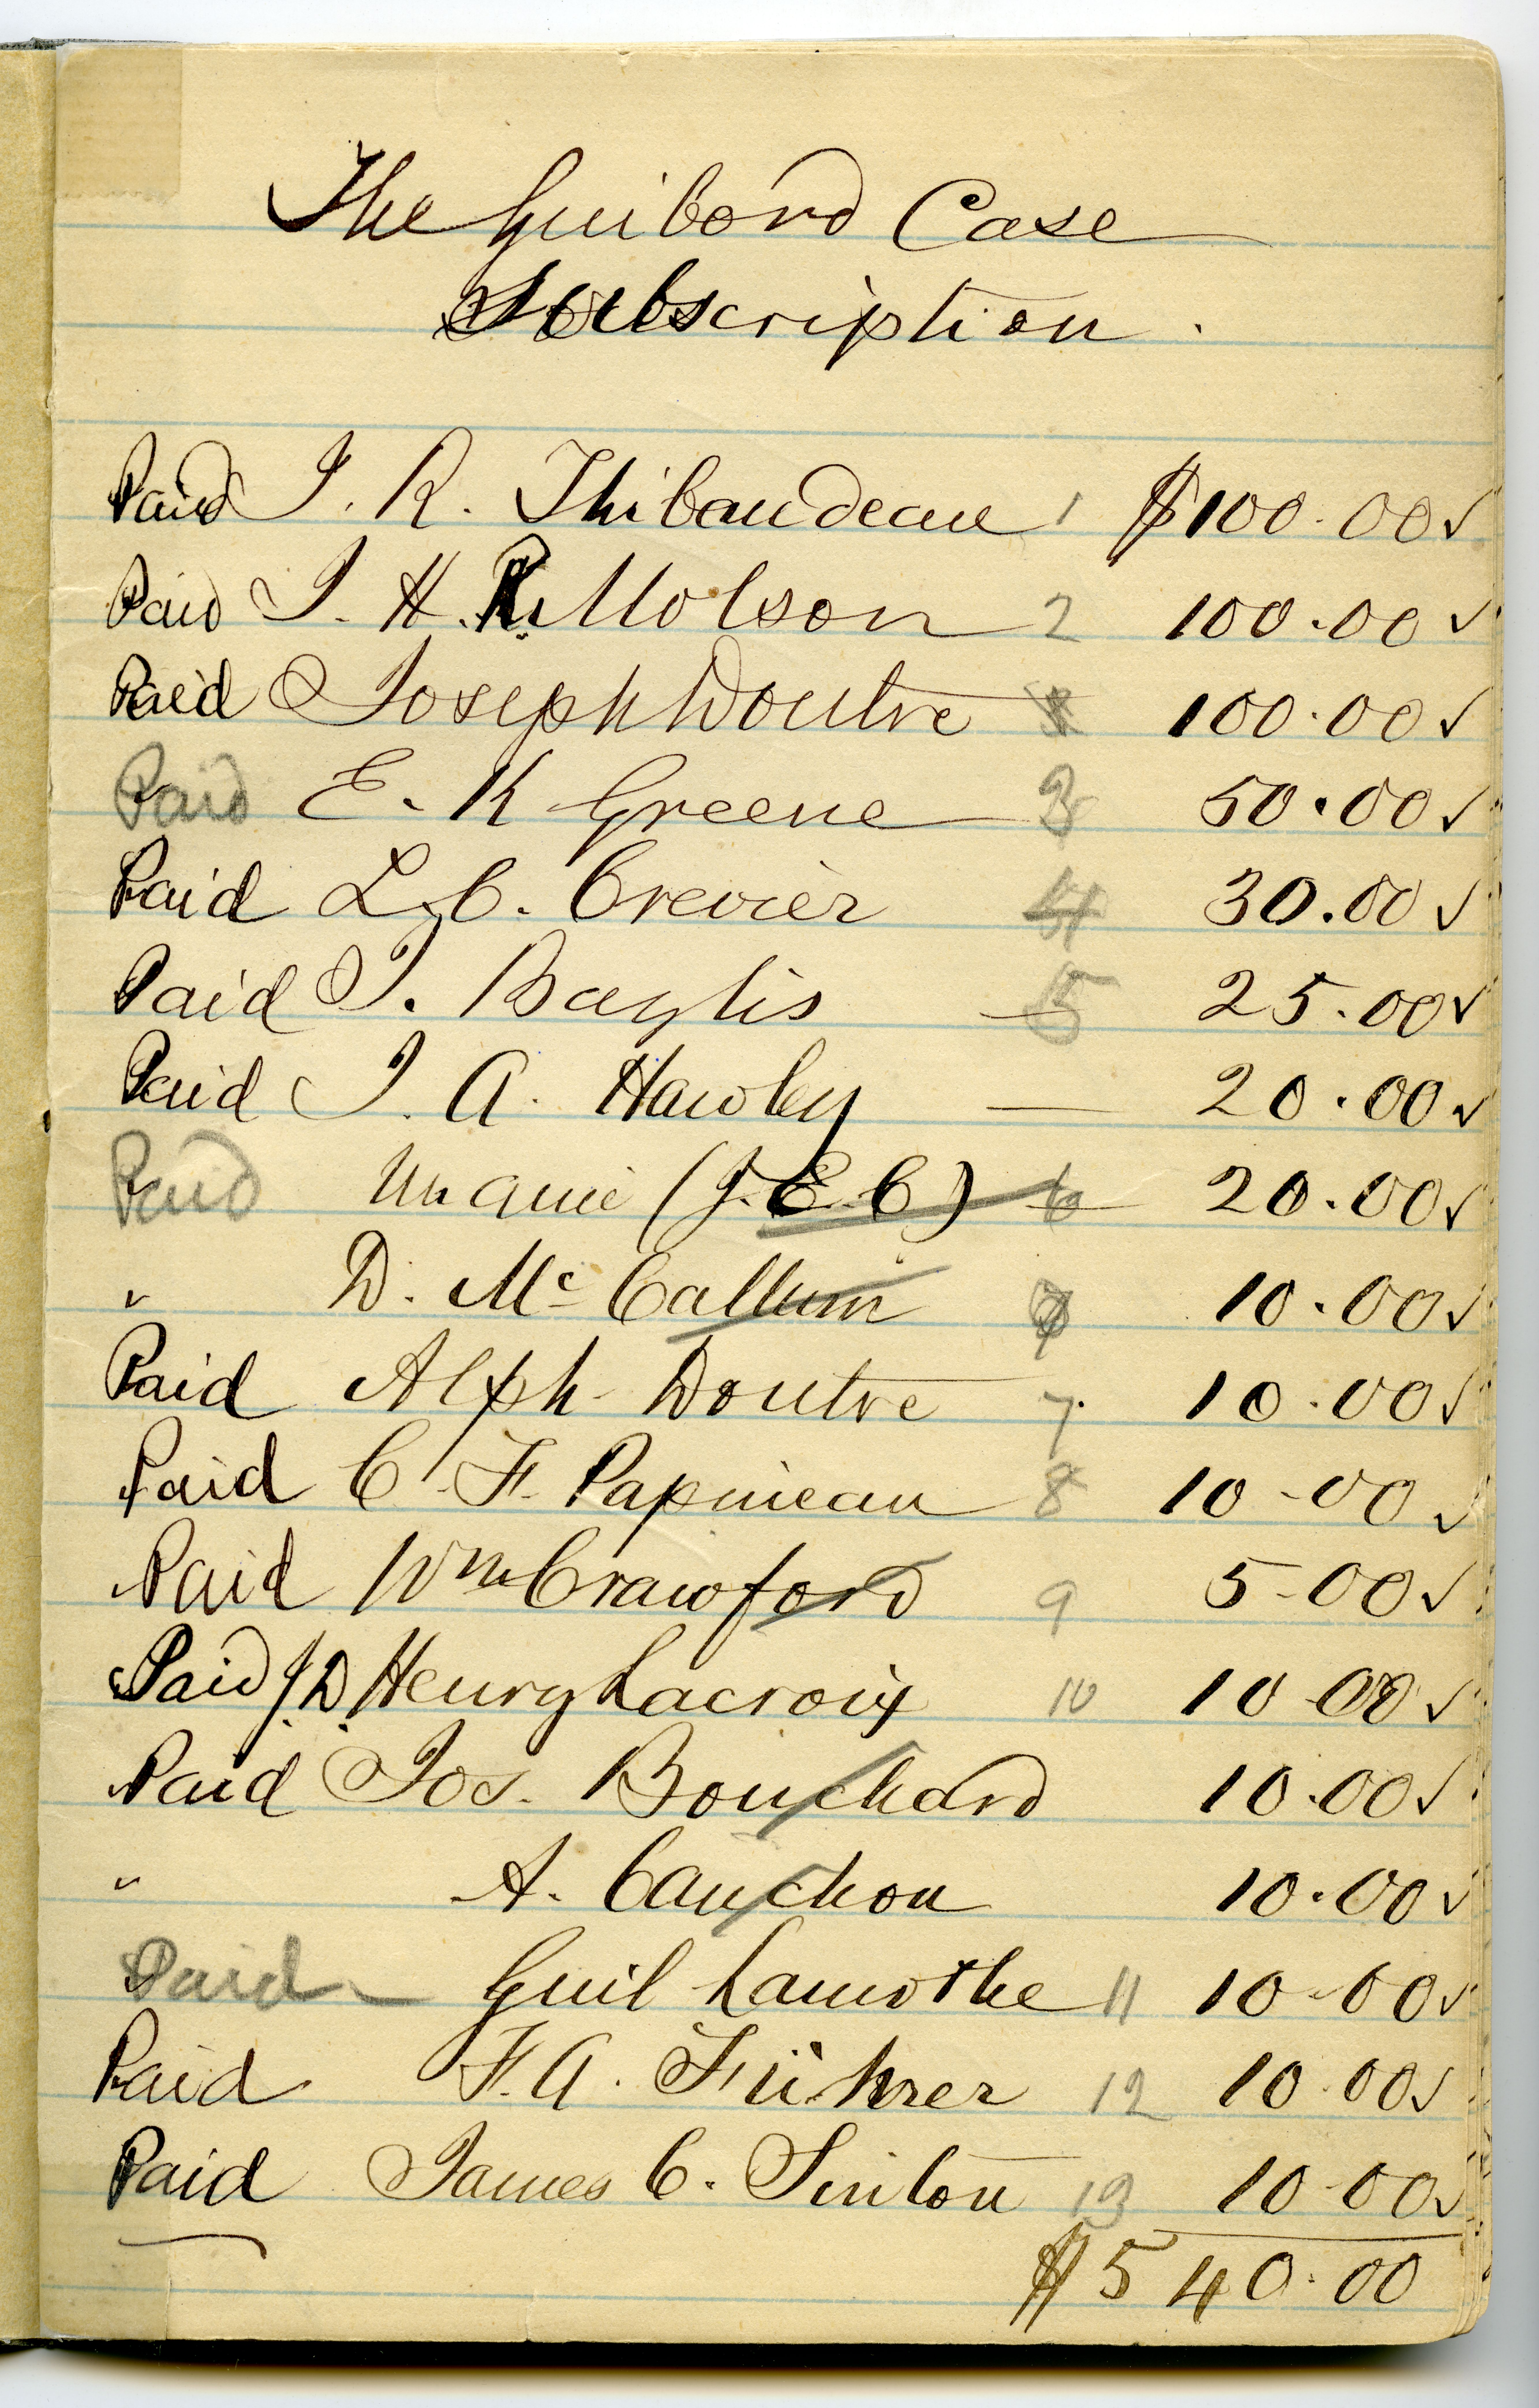 The Guibord Case
Subscription.
Paid J. R. Thibaudeau 1 $100.00 ✓
Paid J. H. R. Molson 2 100.00 ✓
Paid Joseph Doutre 100.00 ✓
Paid E. K Greene 3 50.00 ✓
Paid L. C. Crevier 4 30.00 ✓
Paid J. Baylis — 5 25.00 ✓
Paid J. A. Hawley — 20.00 ✓
Paid Un amie (J. E. C) 6 20.00 ✓
" D. Mc Callum 10.00 ✓
Paid Alph Doutre 7. 10.00 ✓
Paid C. F. Papineau 8 10-00 ✓
Paid Wm Crawford 9 5-00 ✓
Paid J. D. Henry Lacroix 10 10 00 ✓
Paid Jos. Bouchard 10.00 ✓
" A. Cauchon 10.00 ✓
Paid — Guil Lamothe 11 10-00 ✓
Paid F. A. Führer 12 10.00 ✓
Paid James C. Sinton 13 10-00 ✓
$540.00